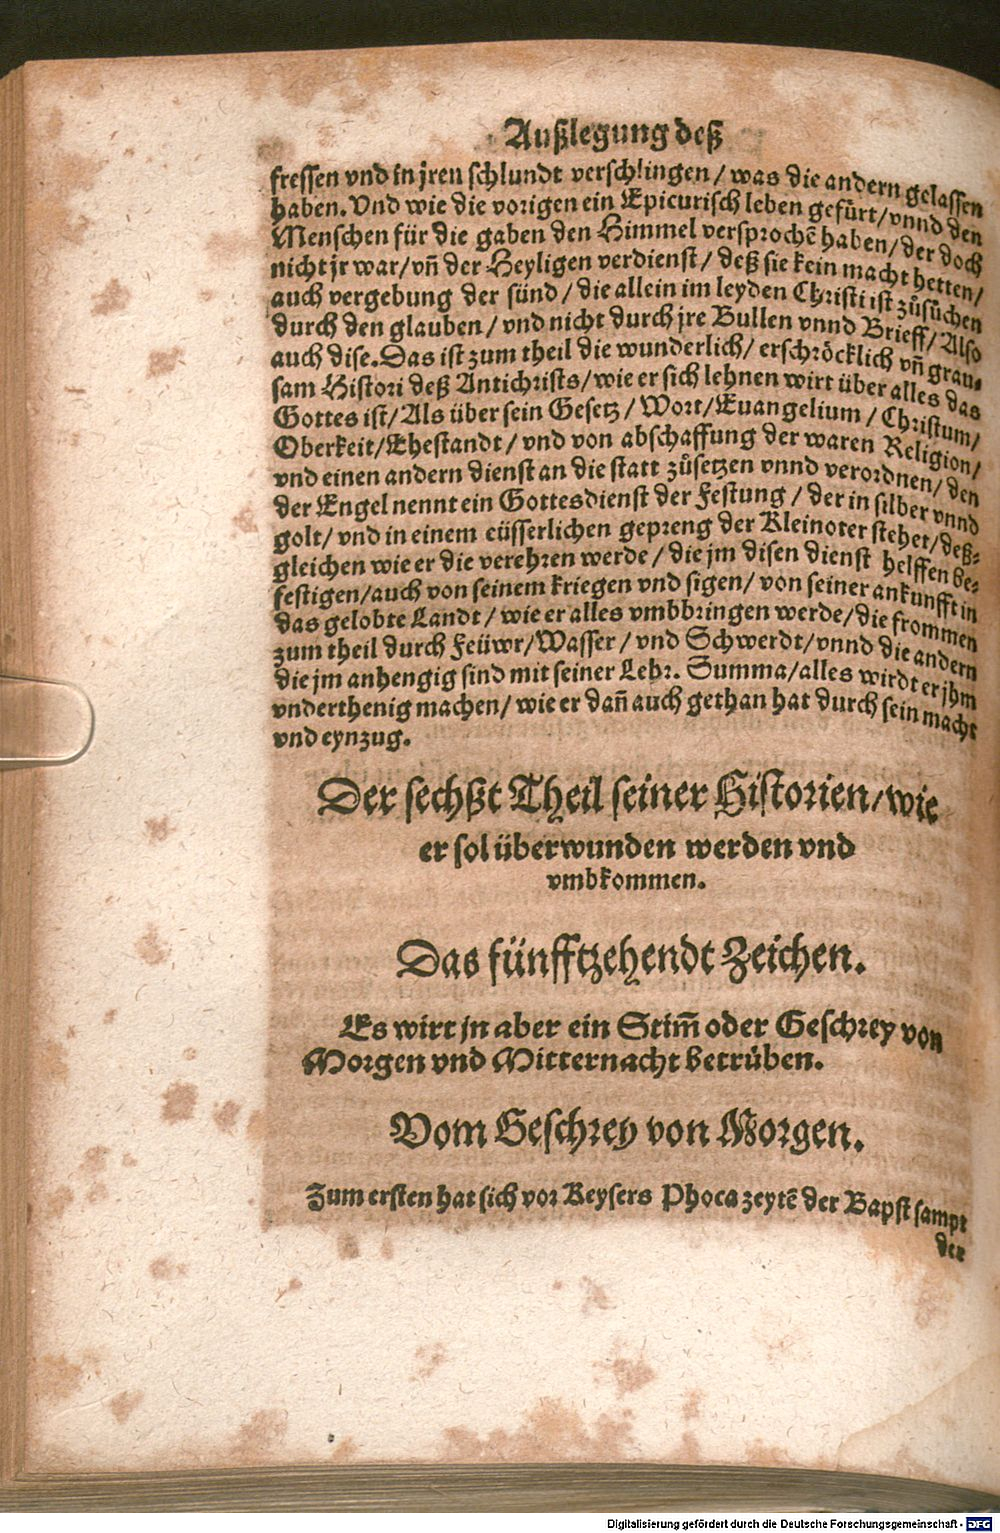 Außlegung deß
fressen vnd in jren schlundt verschlingen / was die andern gelassen
haben. Vnd wie die vorigen ein Epicurisch leben gefürt / vnnd den
Menschen für die gaben den Himmel versprochẽ haben / der doch
nicht jr war / vñ der Heyligen verdienst / deß sie kein macht hetten /
auch vergebung der sünd / die allein im leyden Christi ist zůsůchen
durch den glauben / vnd nicht durch jre Bullen vnnd Brieff / Also
auch dise. Das ist zum theil die wunderlich / erschröcklich vñ grau-
sam Histori deß Antichrists / wie er sich lehnen wirt über alles das
Gottes ist / Als über sein Gesetz / Wort / Euangelium / Christum /
Oberkeit / Ehestandt / vnd von abschaffung der waren Religion /
vnd einen andern dienst an die statt zůsetzen vnnd verordnen / den
der Engel nennt ein Gottesdienst der Festung / der in silber vnnd
golt / vnd in einem eüsserlichen gepreng der Kleinoter stehet / deß-
gleichen wie er die verehren werde / die jm disen dienst helffen be-
festigen / auch von seinem kriegen vnd sigen / von seiner ankunfft in
das gelobte Landt / wie er alles vmbbringen werde / die frommen
zum theil durch Feüwr / Wasser / vnd Schwerdt / vnnd die andern
die jm anhengig sind mit seiner Lehr. Summa / alles wirdt er jhm
vnderthenig machen / wie er dañ auch gethan hat durch sein macht
vnd eynzug.
Der sechßt Theil seiner Historien / wie
er sol überwunden werden vnd
vmbkommen.
Das fünfftzehendt Zeichen.
Es wirt jn aber ein Stim̃ oder Geschrey von
Morgen vnd Mitternacht betrüben.
Vom Geschrey von Morgen.
Zum ersten hat sich vor Keysers Phoca zeytẽ der Bapst sampt
der
Digitalisierung gefördert durch die Deutsche Forschungsgemeinschaft - DFG